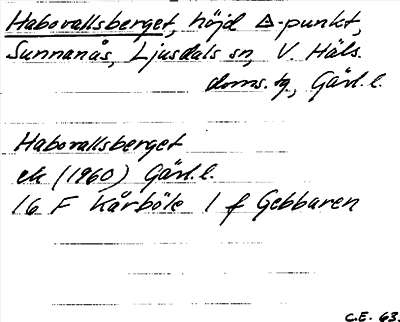 Habovallsberget, höjd △-punkt,
Sunnanås, Ljusdals sn, V. Häls.
doms. tg, Gävl. l.
Habovallsberget
ek (1960) Gävl. l.
16 F Kårböle 1 f Gebbaren
C.E. 63.